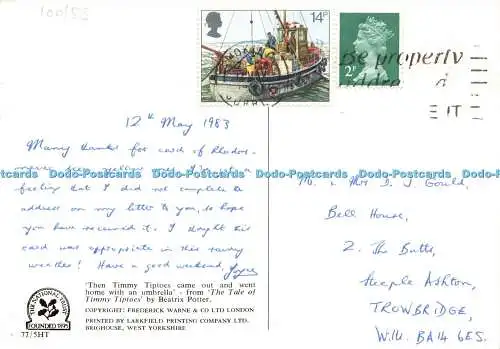 100/53
14P
2P
Be property
IT
12th May 1983
Many thanks for card of Rhodos-
feeling that I did not complete the
address on my letter to you, so hope
you have received it. I thought this
card was appropriate in this rainy
weather! Have a good weekend, Joyce
Dodo-Postcards Dodo-Postcards Dodo-Postcards Dodo-Postcards Dodo-Postcards
Mr. & Mrs I. J. Gould,
Bell House,
2. The Butts,
Steeple Ashton,
TROWBRIDGE,
Wilts. BA14 6ES.
'Then Timmy Tiptoes came out and went
home with an umbrella' - from 'The Tale of
Timmy Tiptoes' by Beatrix Potter.
COPYRIGHT: FREDERICK WARNE & CO LTD LONDON
PRINTED BY LARKFIELD PRINTING COMPANY LTD.
BRIGHOUSE, WEST YORKSHIRE
THE NATIONAL TRUST
FOUNDED 1895
77/5HT